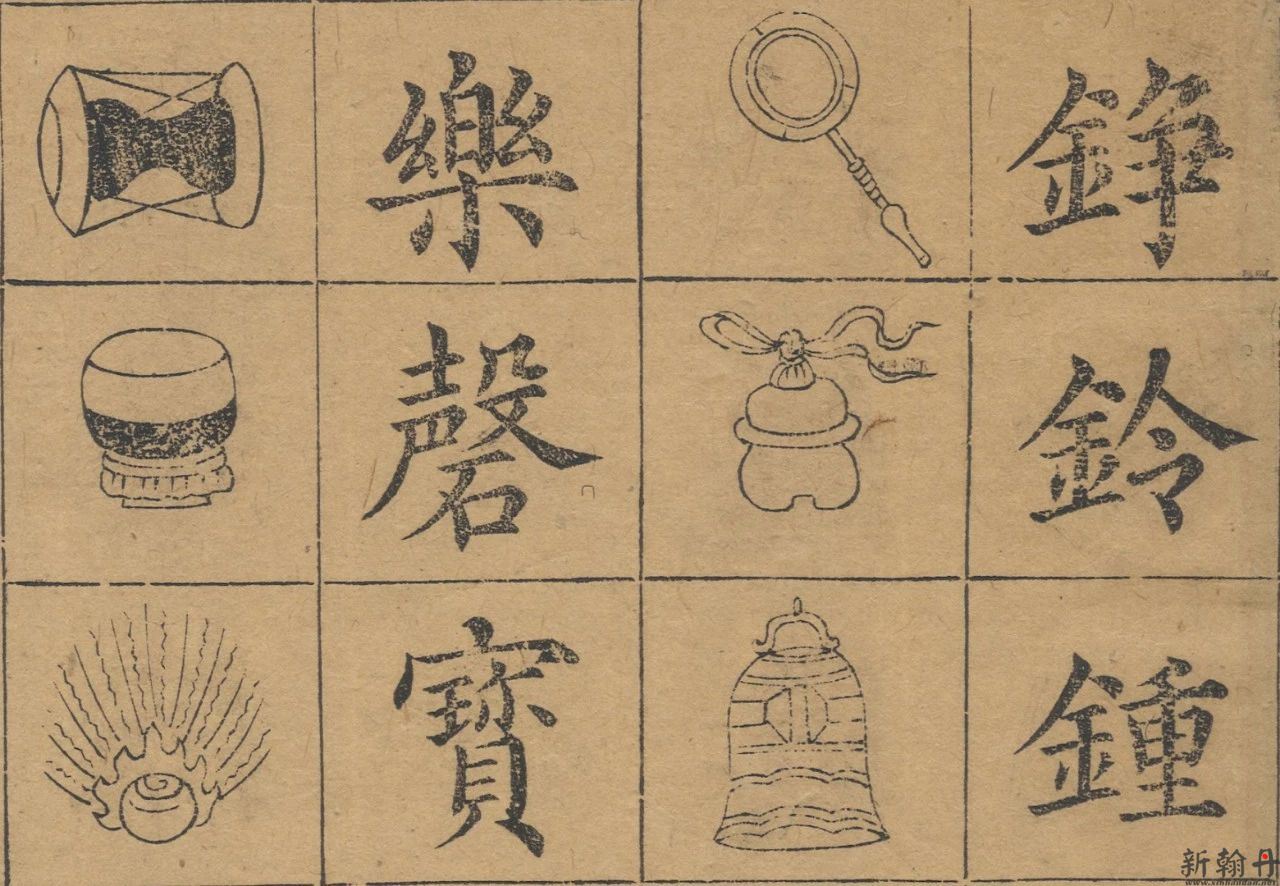 錚
鈴
鍾
樂
磬
寶
新翰丹